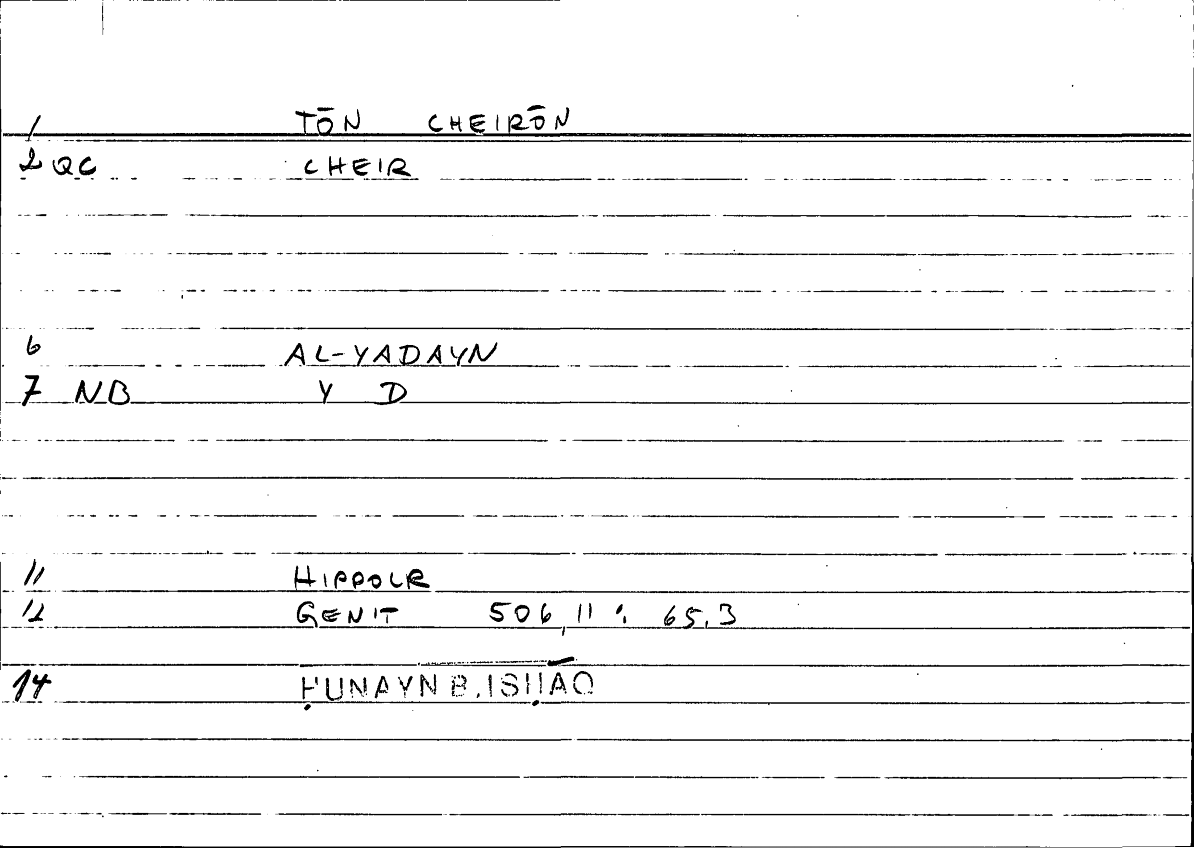 1 TŌN CHEIRŌN
2 QC CHEIR
6 AL-YADAYN
7 NB Y D
11 HIPPOCR
12 GENIT 506,11 : 65.3
14 ḤUNAYN B. ISḤĀQ